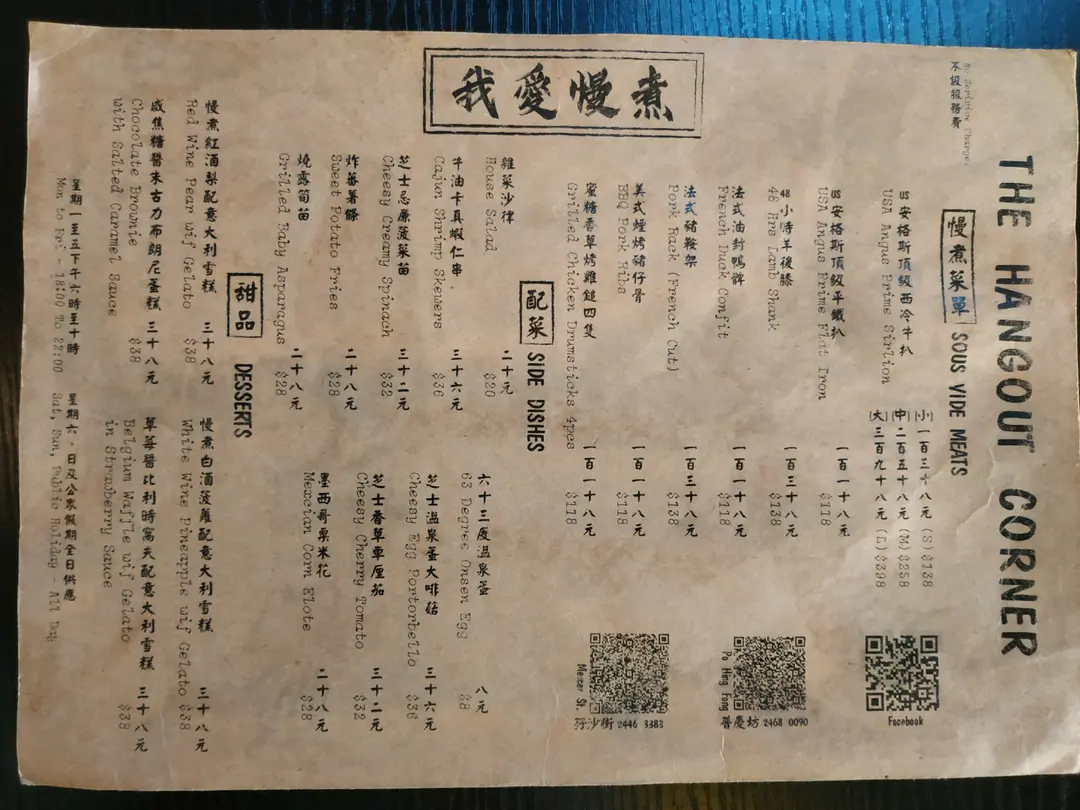 我愛慢煮
THE HANGOUT CORNER
No Service Charge
不設服務費
慢煮菜單 SOUS VIDE MEATS
US安格斯頂級西冷牛扒
USA Angus Prime Sirlion
(小) 一百三十八元 (S) $138
(中) 二百五十八元 (M) $258
(大) 三百九十八元 (L) $398
US安格斯頂級平鐵扒 一百一十八元
USA Angus Prime Flat Iron $118
48小時羊後膝 一百三十八元
48 Hrs Lamb Shank $138
法式油封鴨髀 一百一十八元
French Duck Confit $118
法式豬鞍架 一百三十八元
Pork Rack (French Cut) $138
美式煙烤豬仔骨 一百一十八元
BBQ Pork Ribs $118
蜜糖香草烤雞鎚四隻 一百一十八元
Grilled Chicken Drumsticks 4pcs $118
Facebook
Po Hing Fong
普慶坊 2468 0090
Mercer St.
孖沙街 2446 3383
配菜 SIDE DISHES
雜菜沙律 二十元
House Salad $20
牛油卡真蝦仁串 三十六元
Cajun Shrimp Skewers $36
芝士忌廉菠菜苗 三十二元
Cheesy Creamy Spinach $32
炸蕃薯條 二十八元
Sweet Potato Fries $28
燒露筍苗 二十八元
Grilled Baby Asparagus $28
六十三度溫泉蛋 八元
63 Degree Onsen Egg $8
芝士溫泉蛋大啡菇 三十六元
Cheesy Egg Portorbello $36
芝士香草車厘茄 三十二元
Cheesy Cherry Tomato $32
墨西哥粟米花 二十八元
Mexcian Corn Elote $28
甜品 DESSERTS
慢煮紅酒梨配意大利雪糕 三十八元
Red Wine Pear wif Gelato $38
鹹焦糖醬朱古力布朗尼蛋糕 三十八元
Chocolate Brownie $38
with Salted Caramel Sauce
慢煮白酒菠蘿配意大利雪糕 三十八元
White Wine Pineapple wif Gelato $38
草莓醬比利時窩夫配意大利雪糕 三十八元
Belgium Waffle wif Gelato $38
in Strawberry Sauce
星期一至五下午六時至十時 星期六,日及公眾假期全日供應
Mon to Fri - 18:00 To 22:00 Sat, Sun, Public Holiday - All Day